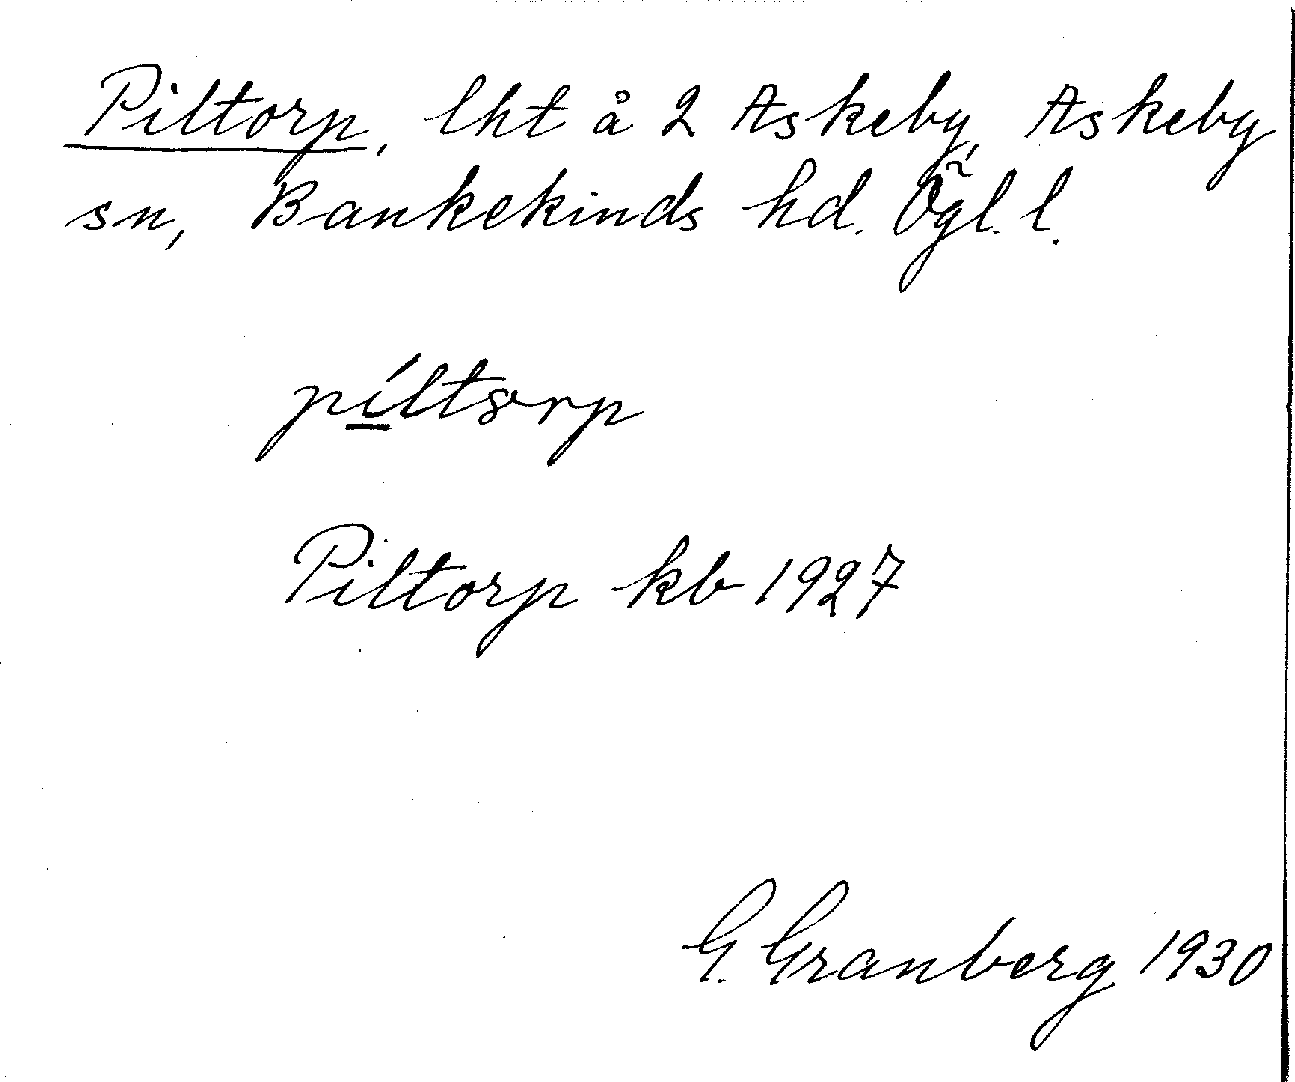 Piltorp, lht å 2 Askeby, Askeby
sn, Bankekinds hd. Ögl. l.
píltorp
Piltorp kb 1927
G. Granberg 1930